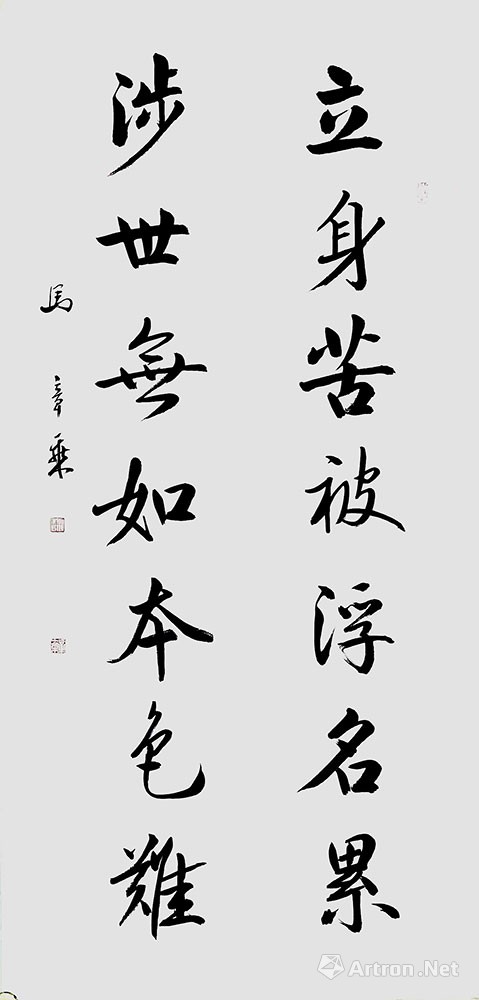 立身苦被浮名累
涉世無如本色難
馬章乘
雅昌 Artron.Net